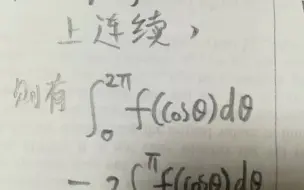 上连续，
则有 ∫₀^{2π} f(cosθ)dθ
= 2∫^π f(cosθ)dθ